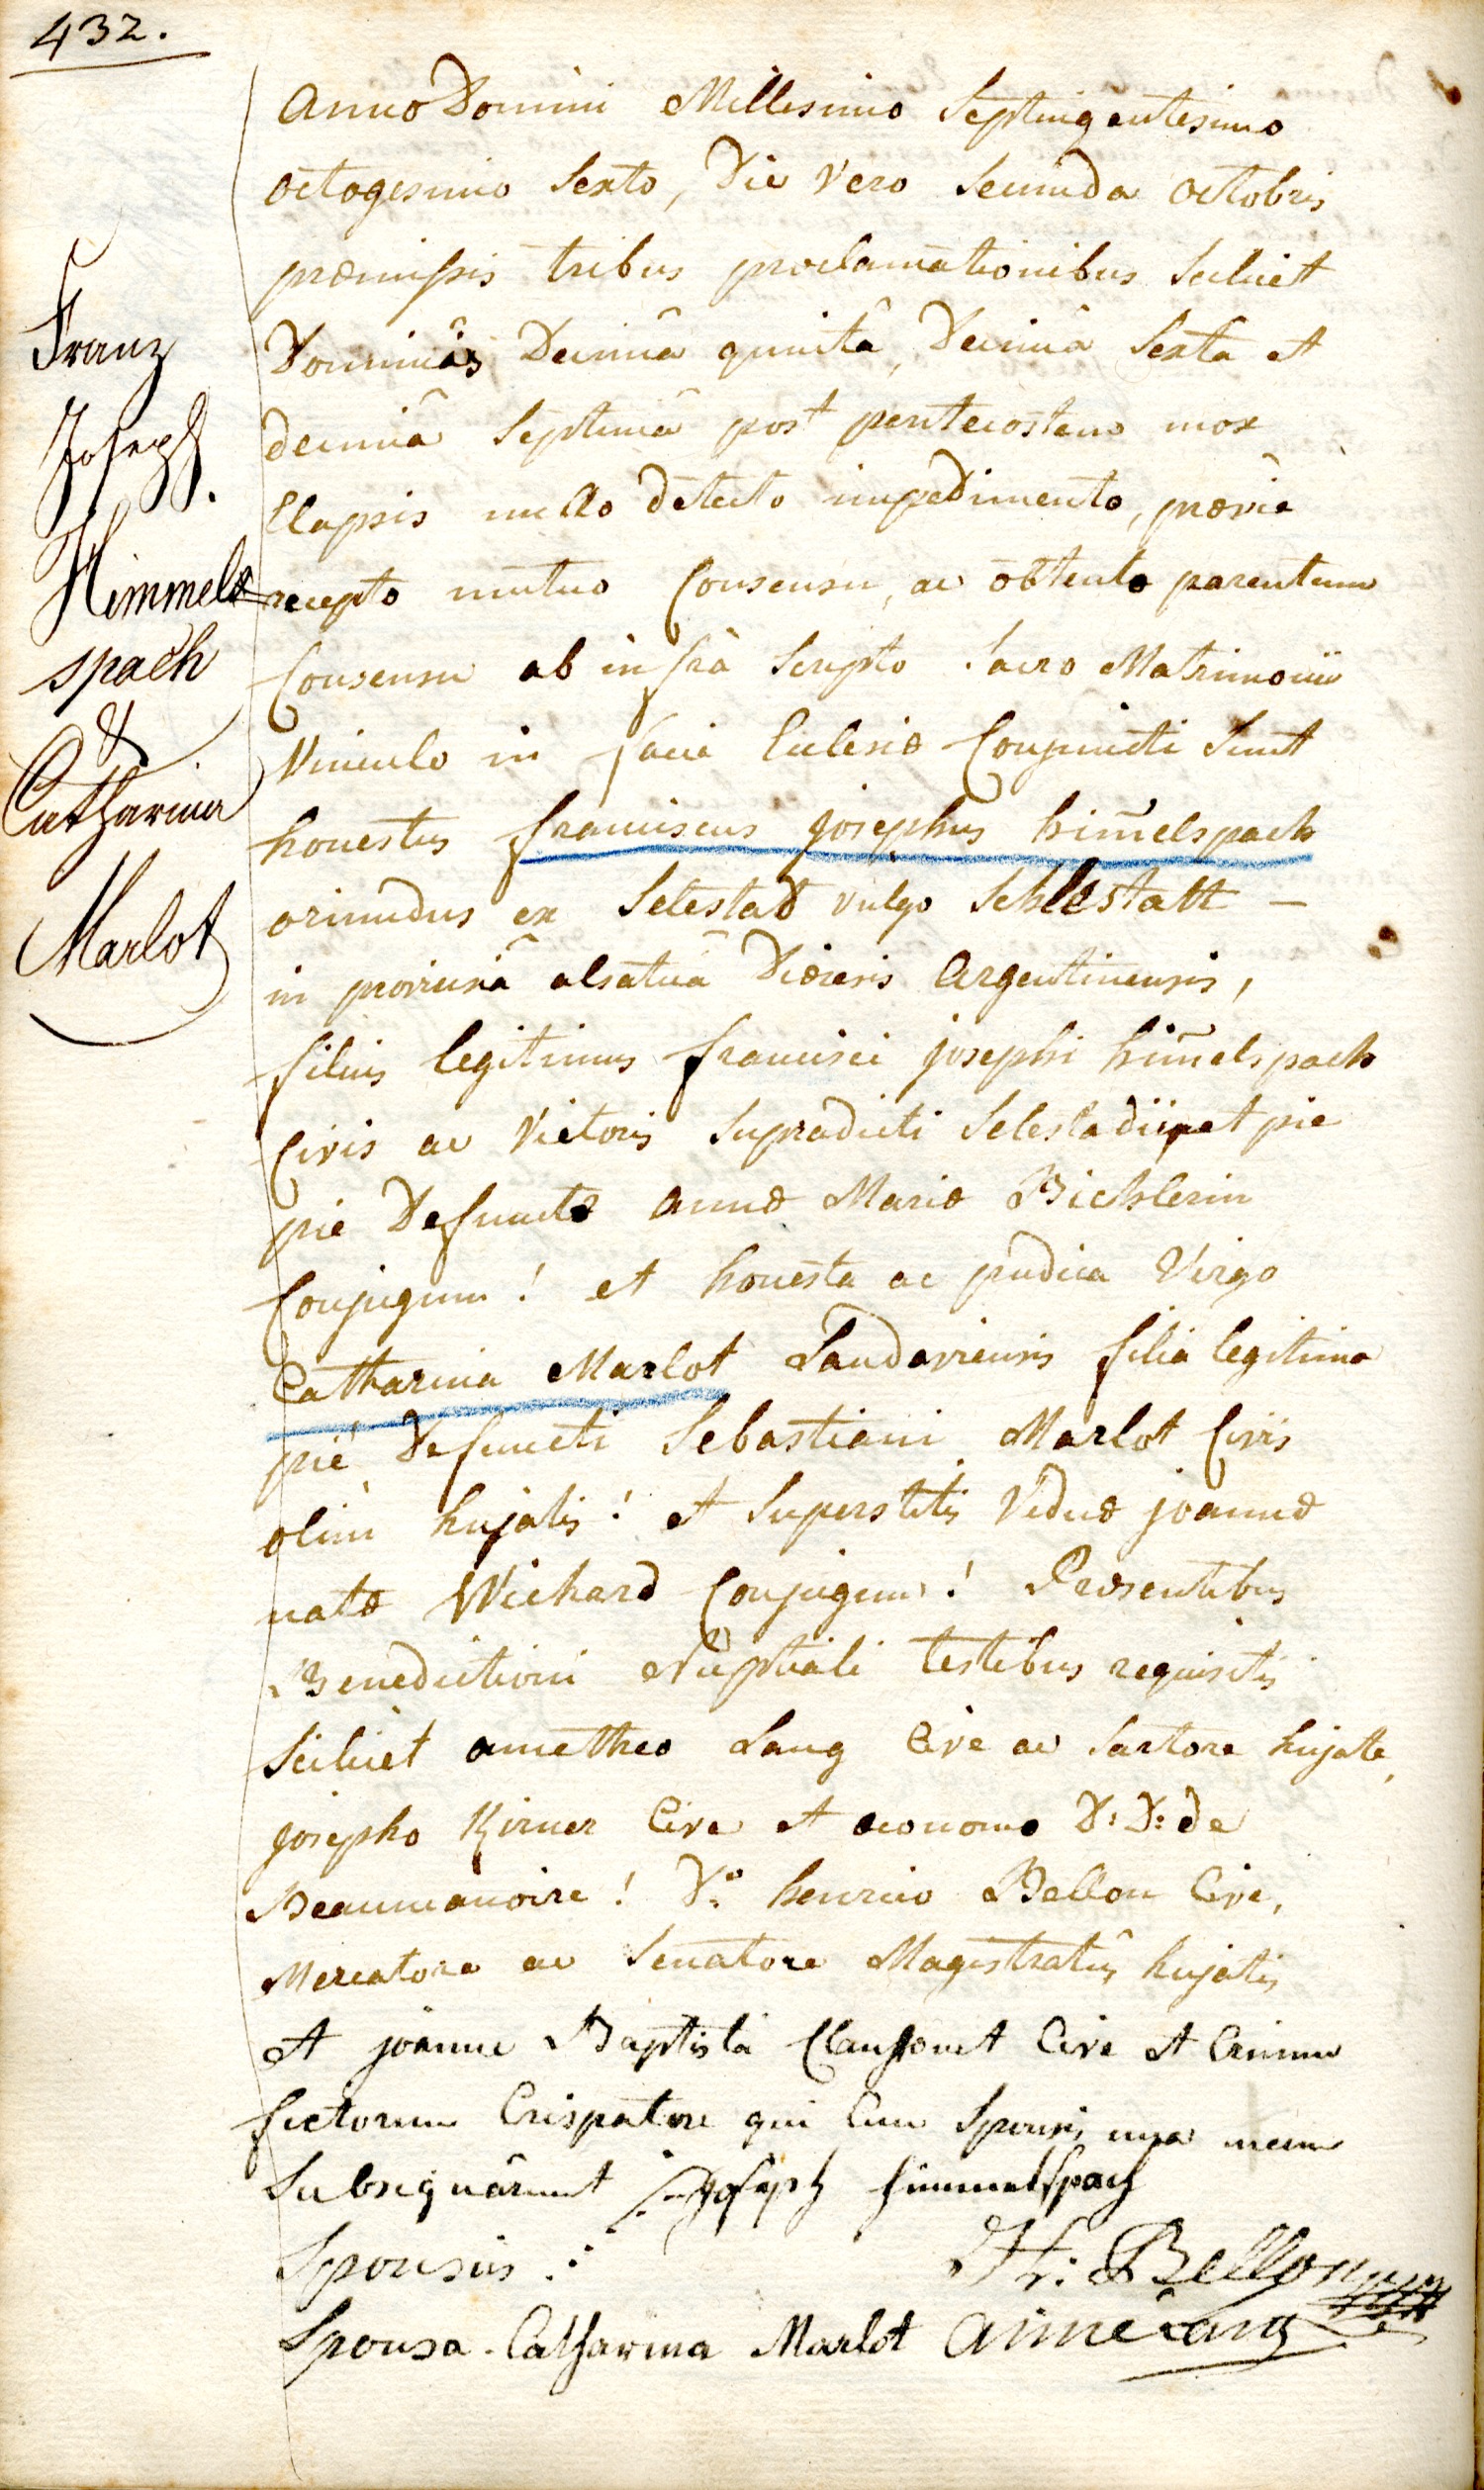 432.
Franz
Joseph
Himmels
spach
&
Catharina
Marlot
Anno Domini Millesimo Septingentesimo
octogesimo Sexto, Die Vero Secunda octobris
præmissis tribus proclamationibus Scilicet
Dominicâs Decimâ quintâ, Decimâ Sexta et
decimâ Septimâ post pentecosten mox
Elapsis nullo detecto impedimento, prævie
recepto mutuo Consensu, ac obtento parentum
Consensu ab infrà Scripto Sacro Matrimonii
Vinculo in facie Ecclesiæ Conjuncti Sunt
honestus franciscus josephus him̃elspach
oriundus ex Selestad vulgo Schlestatt –
in provinciâ alsatiâ Diœcesis Argentinensis,
filius legitimus francisci josephi him̃elspach
Civis ac Vietoris Supradicti Selestadii et pie
pie Defunctæ annæ Mariæ Bichlerin
Conjugum! et honesta ac pudica Virgo
Catharina Marlot Landaviensis filia legitima
pié Defuncti Sebastiani Marlot Civis
olim hujatis! et Superstitis Viduæ joannæ
natæ Wichard Conjugum! Præsentibus
Benedictioni Nuptiali testibus requisitis
Scilicet ametheo Lang Cive ac Sartore hujate,
josepho Kirner Cive et œconomo D: D: de
Beaumanoire! D.° henrico Bellon Cive,
Mercatore ac Senatore Magistratûs hujatis
et joanne Baptista Claussonet Cive et Crinium
fictorum Crispatore qui Cum Sponsis una mecum
Subsignârunt Joseph Himmelspach
Sponsus :
Hr: Bellon
Sponsa. Catharina Marlot Aimé Lang